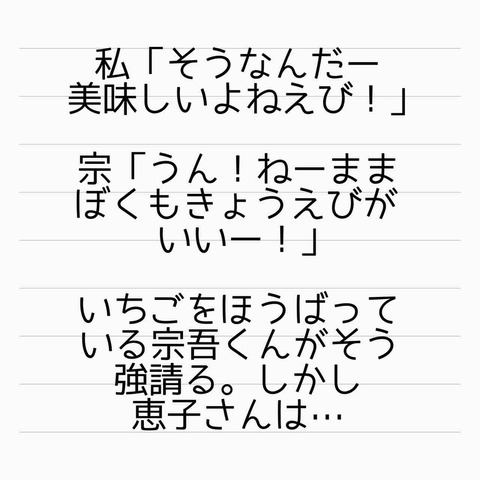 私「そうなんだー
美味しいよねえび！」
宗「うん！ねーまま
ぼくもきょうえびが
いいー！」
いちごをほうばって
いる宗吾くんがそう
強請る。しかし
恵子さんは…